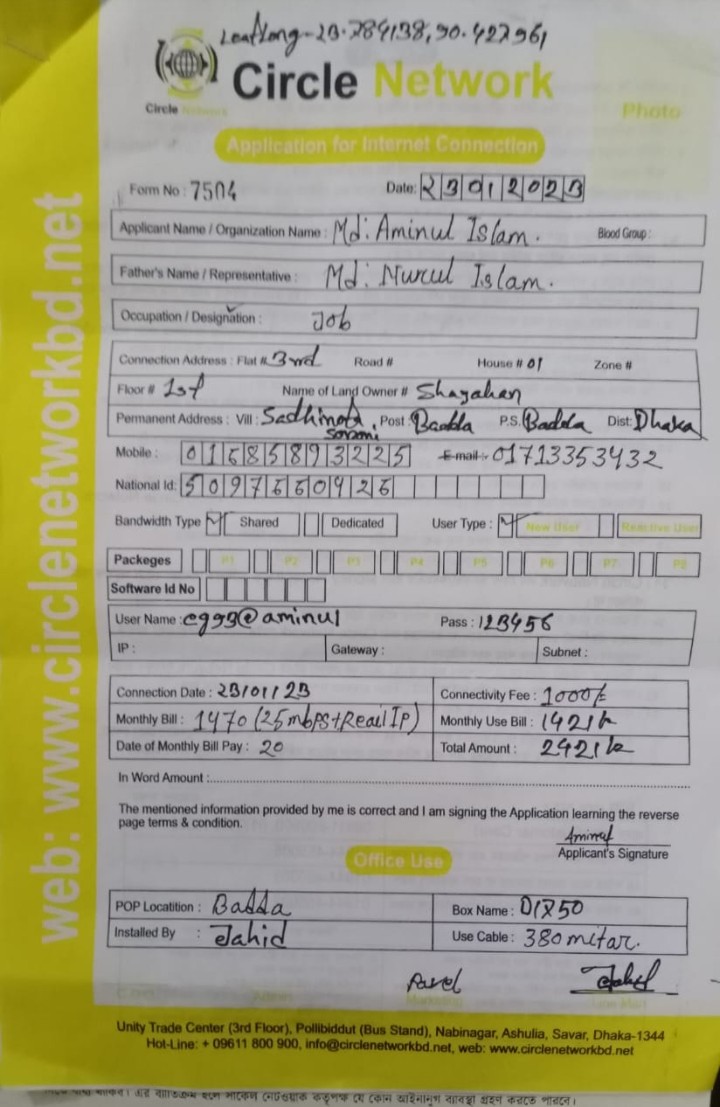 Leat/Long-23.784138,90.427961
Circle Network
Circle Network
Photo
Application for Internet Connection
Form No : 7504 Date: 23012023
Applicant Name / Organization Name : Md: Aminul Islam. Blood Group :
Father's Name / Representative : Md: Nurul Islam.
Occupation / Designation : Job
Connection Address : Flat # 3rd Road # House # 01 Zone #
Floor # 1st Name of Land Owner # Shayahan
Permanent Address : Vill : Sadhinota Soroni, Post: Badda P.S. Badda Dist: Dhaka
Mobile : 01685893225 E-mail :- 01713353432
National Id: 5097660426
Bandwidth Type Shared Dedicated User Type : New User Reactive User
Packeges P1 P2 P3 P4 P5 P6 P7 P8
Software Id No
User Name : c993@aminul Pass : 123456
IP : Gateway : Subnet :
Connection Date : 23/01/23 Connectivity Fee : 1000/=
Monthly Bill : 1470 (25mbps+Reail IP) Monthly Use Bill : 1421tk
Date of Monthly Bill Pay : 20 Total Amount : 2421tk
In Word Amount :
The mentioned information provided by me is correct and I am signing the Application learning the reverse
page terms & condition.
Aminul
Applicant's Signature
Office Use
POP Locatition : Badda Box Name : D1X50
Installed By : Jahid Use Cable : 380 mitar.
Parvel Jahid
Marketing Line Man
Unity Trade Center (3rd Floor), Pollibiddut (Bus Stand), Nabinagar, Ashulia, Savar, Dhaka-1344
Hot-Line: + 09611 800 900, info@circlenetworkbd.net, web: www.circlenetworkbd.net
web: www.circlenetworkbd.net